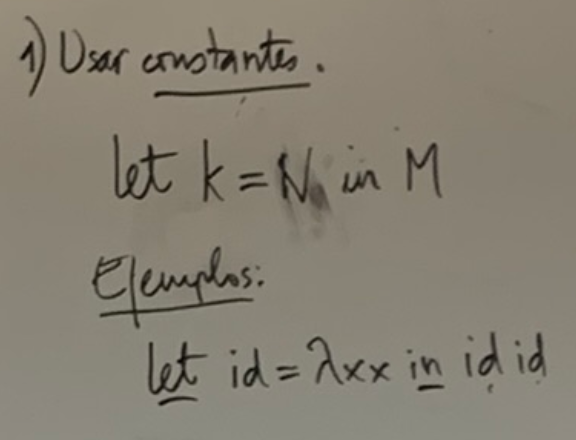 1) Usar constantes.
let k = N in M
Ejemplos:
let id = λxx in id id